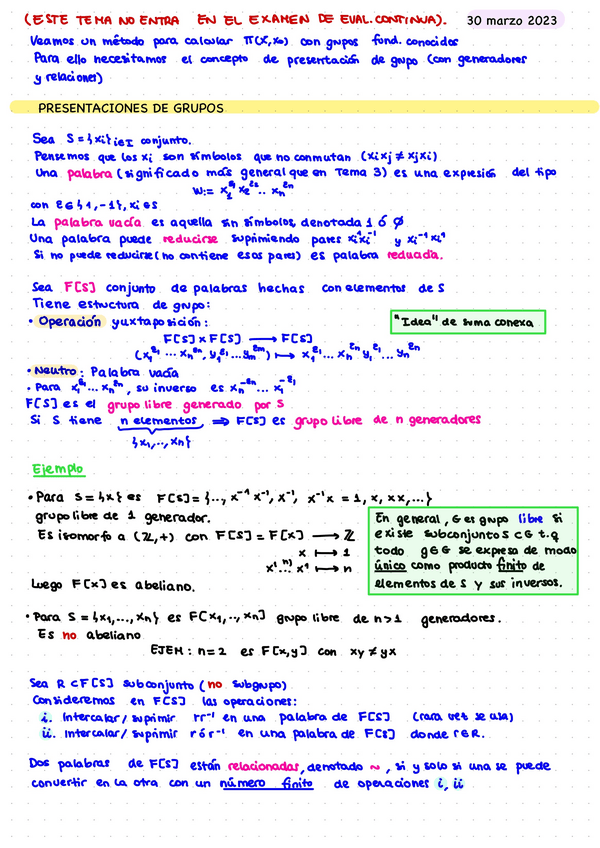 (ESTE TEMA NO ENTRA EN EL EXAMEN DE EVAL. CONTINUA). 30 marzo 2023
Veamos un método para calcular π(X,x₀) con grupos fund. conocidos
Para ello necesitamos el concepto de presentación de grupo (con generadores
y relaciones)
PRESENTACIONES DE GRUPOS
Sea S = {xᵢ}ᵢ∈I conjunto.
Pensemos que los xᵢ son símbolos que no conmutan (xᵢxⱼ ≠ xⱼxᵢ)
Una palabra (significado más general que en Tema 3) es una expresión del tipo
W := x₁^ε₁ x₂^ε₂ ... xₙ^εₙ
con ε ∈ {1, -1}, xᵢ ∈ S
La palabra vacía es aquella sin símbolos, denotada 1 ó ∅
Una palabra puede reducirse suprimiendo pares xᵢ¹xᵢ⁻¹ y xᵢ⁻¹xᵢ¹
Si no puede reducirse (no contiene esos pares) es palabra reducida.
Sea F[S] conjunto de palabras hechas con elementos de S
Tiene estructura de grupo:
• Operación yuxtaposición: "Idea" de suma conexa
F[S] x F[S] ⟶ F[S]
(x₁^ε₁ ... xₙ^εₙ, y₁^ε₁ ... yₘ^εₘ) ↦ x₁^ε₁ ... xₙ^εₙ y₁^ε₁ ... yₙ^εₙ
• Neutro: Palabra vacía
• Para x₁^ε₁ ... xₙ^εₙ, su inverso es xₙ^-εₙ ... x₁^-ε₁
F[S] es el grupo libre generado por S
Si S tiene n elementos ⇒ F[S] es grupo libre de n generadores
{x₁, ..., xₙ}
Ejemplo
• Para S = {x} es F[S] = {..., x⁻¹x⁻¹, x⁻¹, x⁻¹x = 1, x, xx, ...}
grupo libre de 1 generador.
Es isomorfo a (ℤ,+) con F[S] = F[x] ⟶ ℤ
x ↦ 1
x¹ .ⁿ⁾. x¹ ↦ n
Luego F[x] es abeliano.
En general, G es grupo libre si
existe subconjunto S ⊂ G t.q
todo g ∈ G se expresa de modo
único como producto finito de
elementos de S y sus inversos.
• Para S = {x₁, ..., xₙ} es F[x₁, .., xₙ] grupo libre de n > 1 generadores.
Es no abeliano
EJEM: n = 2 es F[x,y] con xy ≠ yx
Sea R ⊂ F[S] subconjunto (no subgrupo)
Consideremos en F[S] las operaciones:
i. Intercalar / suprimir rr⁻¹ en una palabra de F[S] (rara vez se usa)
ii. Intercalar / suprimir r ó r⁻¹ en una palabra de F[S] donde r ∈ R.
Dos palabras de F[S] están relacionadas, denotado ~, si y solo si una se puede
convertir en la otra con un número finito de operaciones i, ii